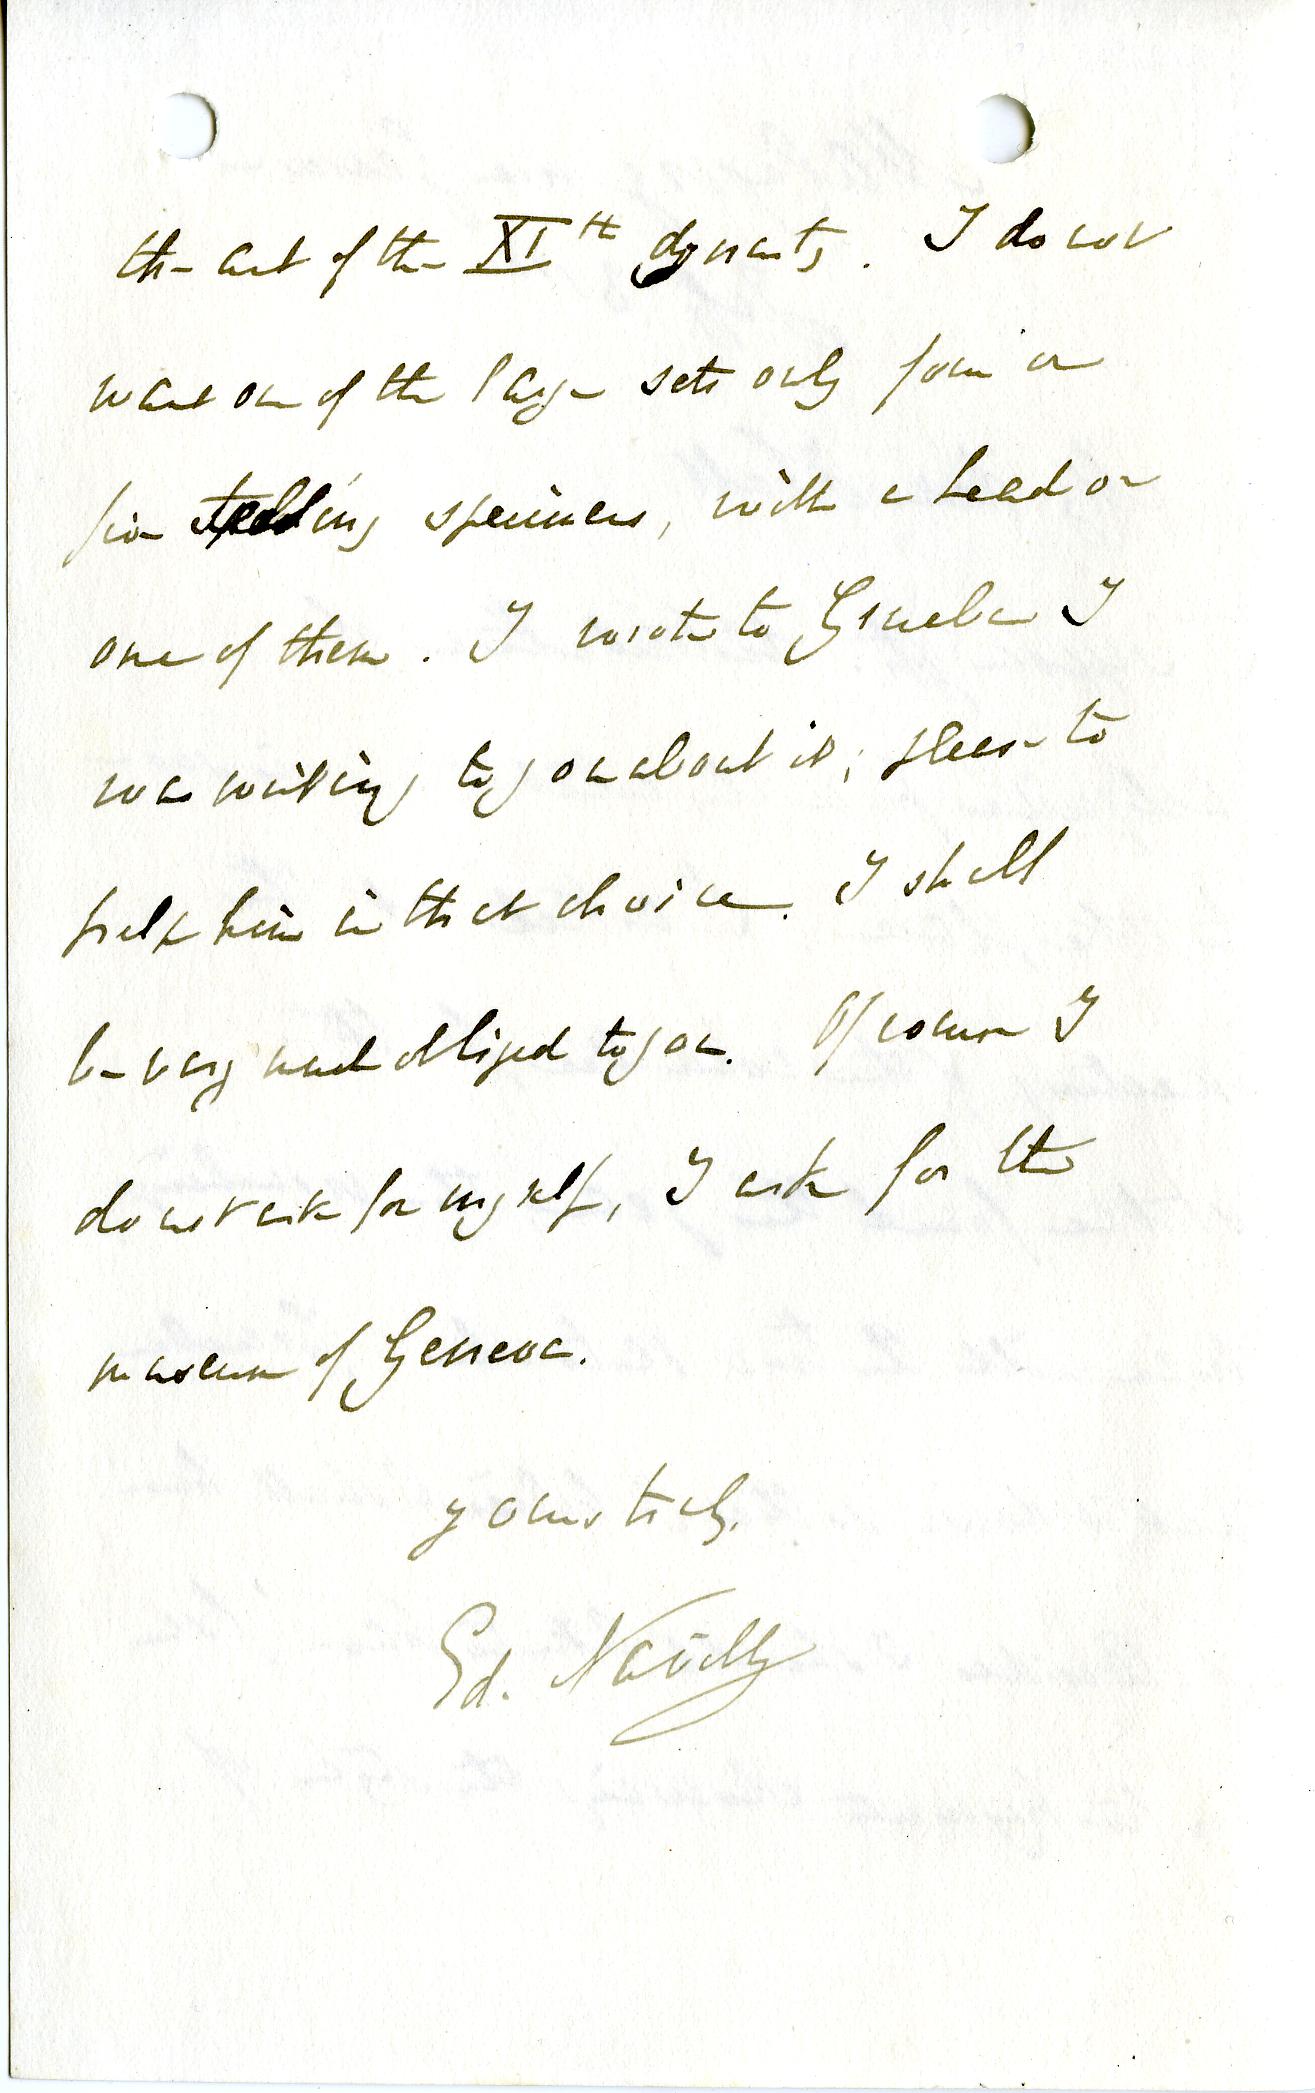 the art of the XIth dynasty. I do not
want one of the large sets only four or
five telling specimens, with a head on
one of them. I wrote to Grueber I
was writing to you about it; please to
help him in that choice. I shall
be very much obliged to you. Of course I
do not ask for myself, I ask for the
museum of Geneva.
yours truly.
Ed. Naville